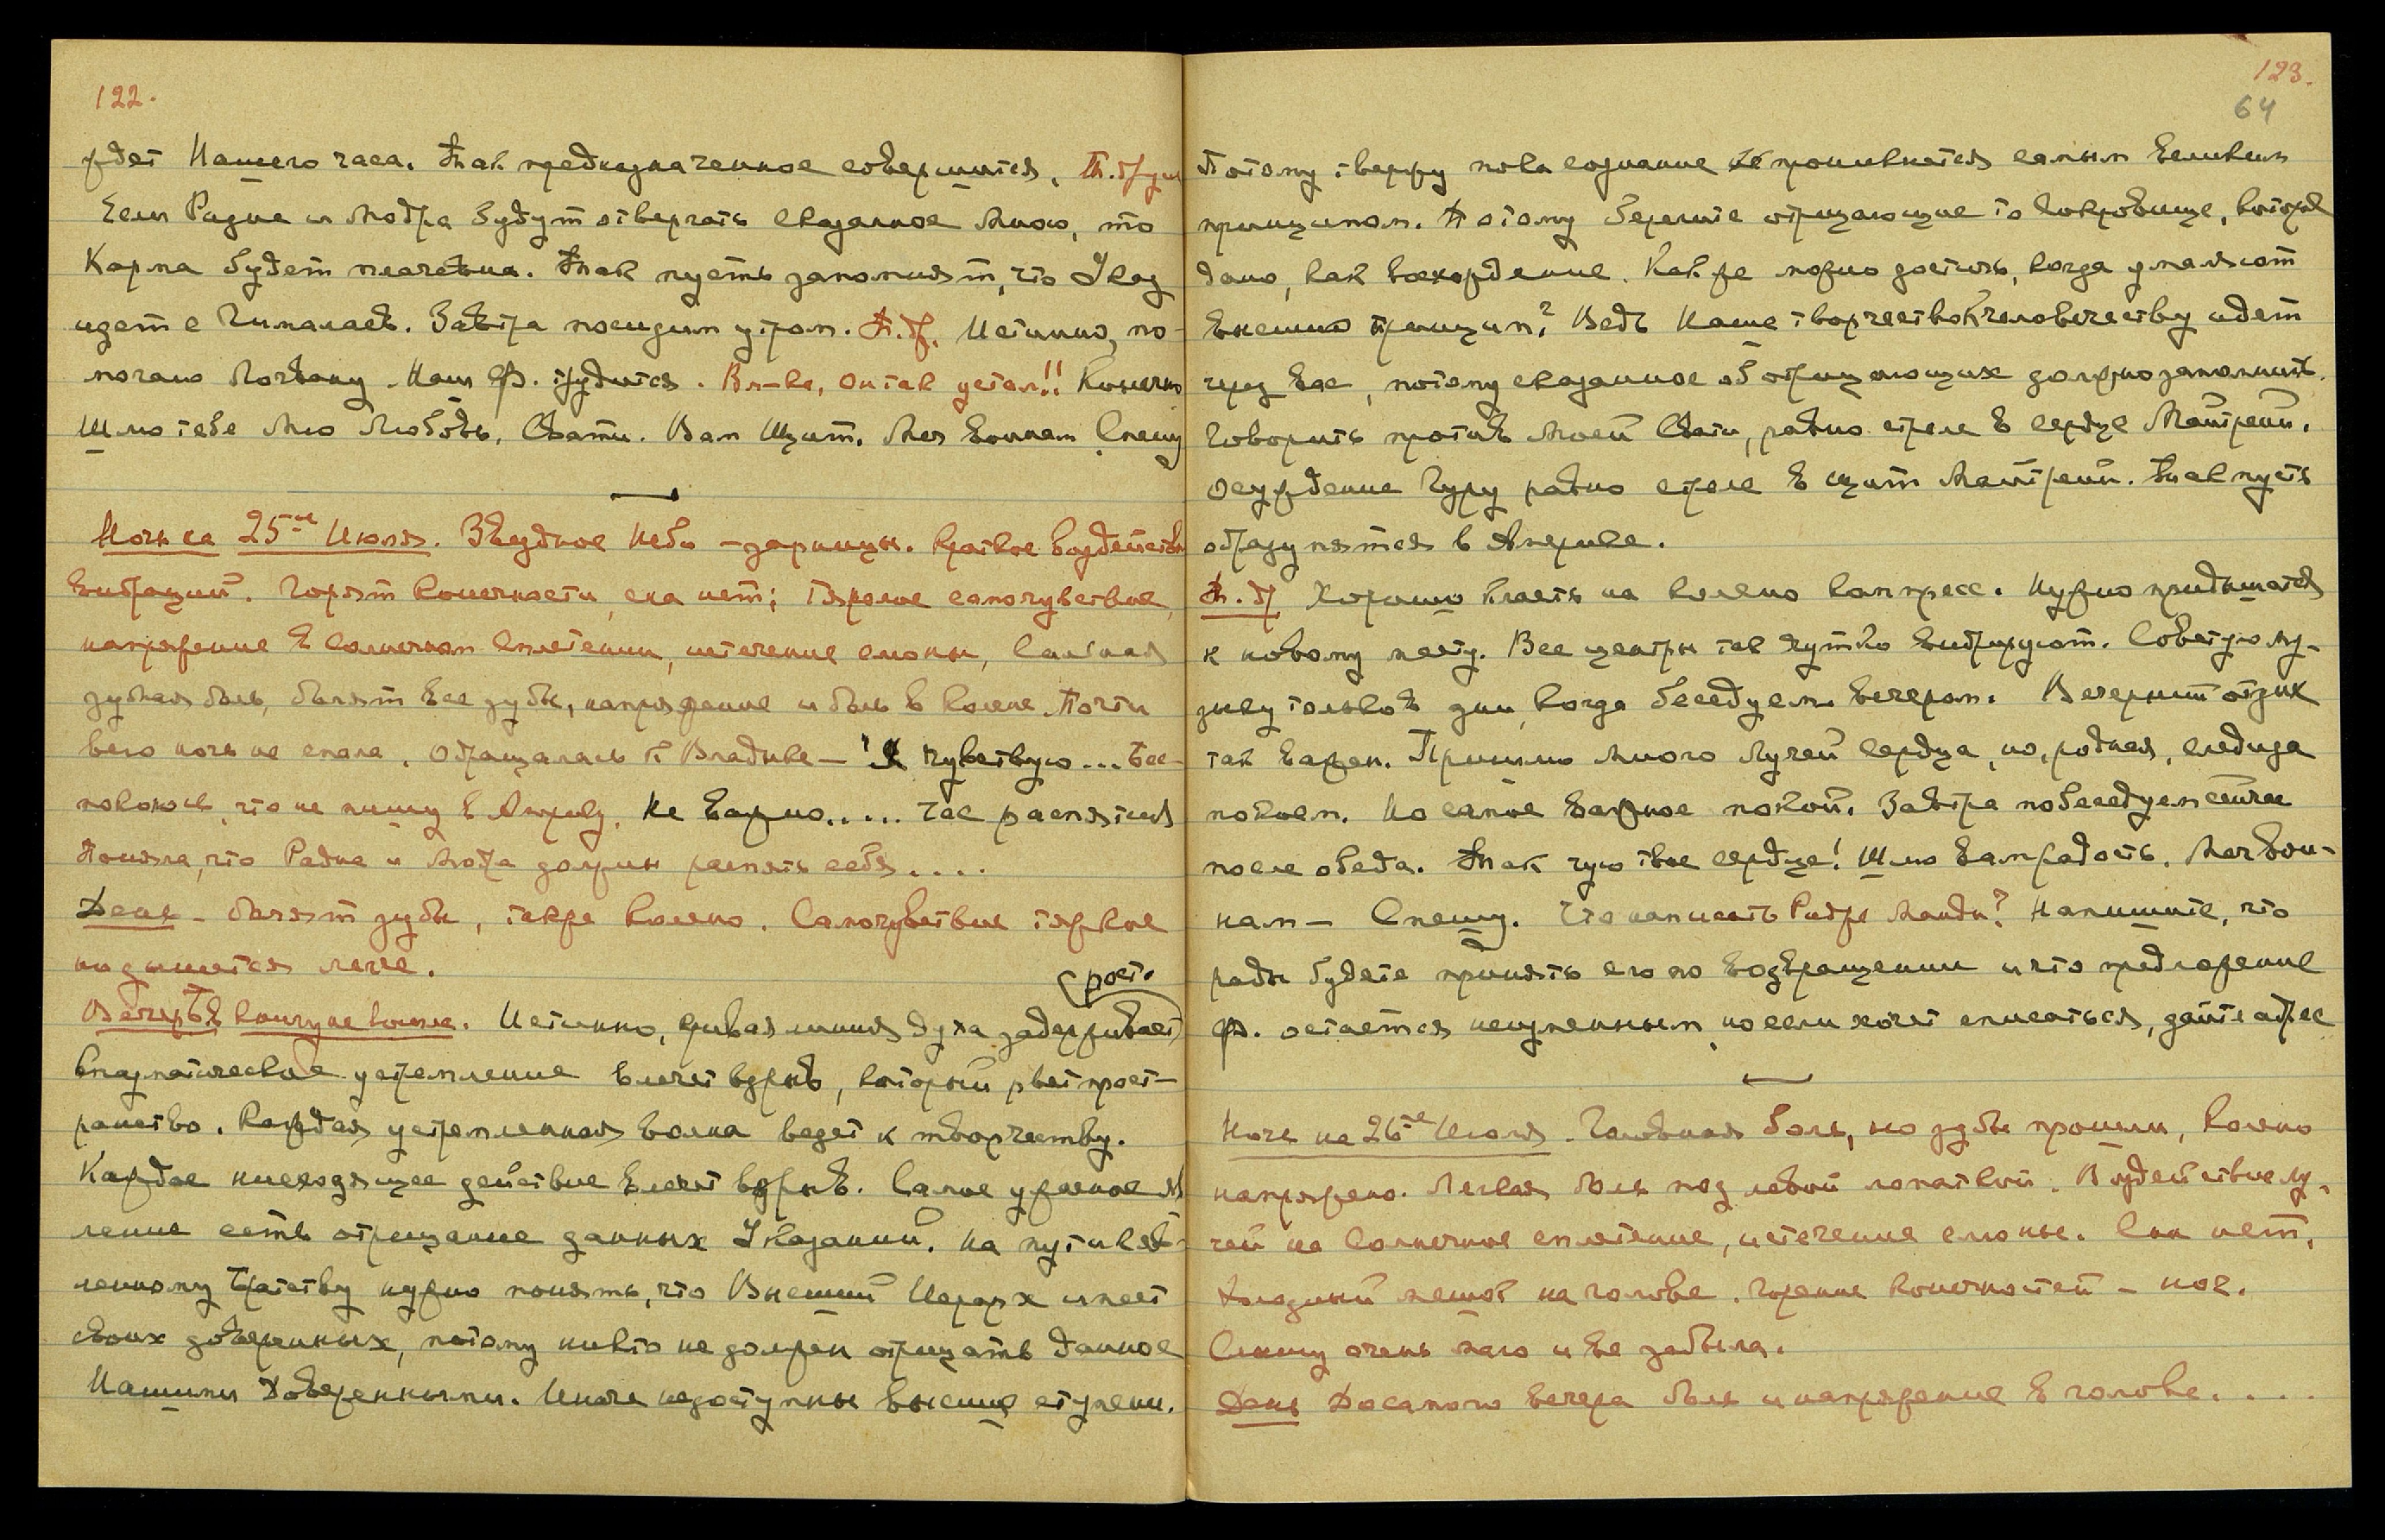 122.
ждет Нашего часа. Так предназначенное совершится.
Если Радна и Модра будут отвергать сказанное Мною, то
Карма будет плачевна. Так пусть запомнят, что Указ
идет с Гималаев. Завтра посидим утром. Истинно, по-
могаю Логвану. Наш Ф. трудится. Вл-ка, Он так устал!! Конечно
Шлю тебе Мою Любовь, Свати. Вам Щит. Меч воинам. Спешу
Ночь на 25ое Июля. Звездное Небо – зарницы. Краткое воздействие
вибраций. Горят конечности, сна нет; Тяжелое самочувствие,
напряжение в солнечном сплетении, истечение слюны, сильная
зубная боль, болят все зубы, напряжение и боль в колене. Почти
всю ночь не спала. Обращалась к Владыке – "Я чувствую... Бес-
покоюсь, что не пишу в Америку. Не важно..... час распятия
Поняла, что Радна и Модра должны распять себя....
День – болят зубы, также колено. Самочувствие тяжкое
но дышится легче.
Вечер В книгу не вошло. Истинно, кривая линия духа задерживает
(рост.
устремление влечет взрыв, который рвет прост-
ранство. Каждая устремленная волна ведет к творчеству.
Каждое нисходящее действие влечет взрыв. Самое ужасное яв-
ление есть отрицание данных Указаний. На пути к яв-
ленному Братству нужно понять, что Высший Иерарх имеет
своих доверенных, потому никто не должен отрицать данное
Нашими Доверенными. Иначе недоступны высшие ступени.
123.
64
Потому твержу пока сознание не проникнется самым Великим
принципом. Потому берегите отрицающие то Сокровище, которое
дано, как восхождение. Как же можно достичь, когда умаляют
принцип? Ведь Наше творчество к человечеству идет
через Вас, потому сказанное об отрицающих должно запомнить.
Говорить против Моей Свати, равно стреле в сердце Майтрейи.
Осуждение Гуру равно стреле в щит Майтрейи. Так пусть
образумятся в Америке.
Хорошо класть на колено компресс. Нужно придышаться
к новому месту. Все центры так чутко вибрируют. Советую му-
зыку только в дни, когда беседуем вечером. Вечерний отдых
так важен. Пришлю много Лучей сердца, но, родная, следи за
покоем. Но самое важное покой. Завтра побеседуем сейчас
после обеда. Так чую твое сердце! Шлю Вам радость. Меч вои-
нам – Спешу. Что написать Радже Манди? Напишите, что
рады будете принять его по возвращении и что предложение
Ф. остается неизменным, но если хочет списаться, дайте адрес
Ночь на 26ое Июля. Головная боль, но зубы прошли, колено
напряжено. Легкая боль под левой лопаткой. Воздействие лу-
чей на Солнечное сплетение, истечение слюны. Сна нет.
Холодный мешок на голове. Горение конечностей – ног.
Слышу очень мало и все забыла.
День До самого вечера боль и напряжение в голове....